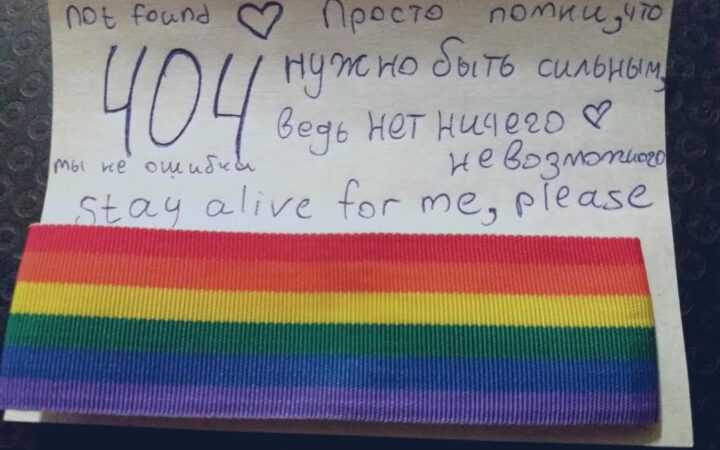 not found ♡ Просто помни, что
404 нужно быть сильным,
ведь нет ничего ♡
ты не ошибка невозможного
stay alive for me, please